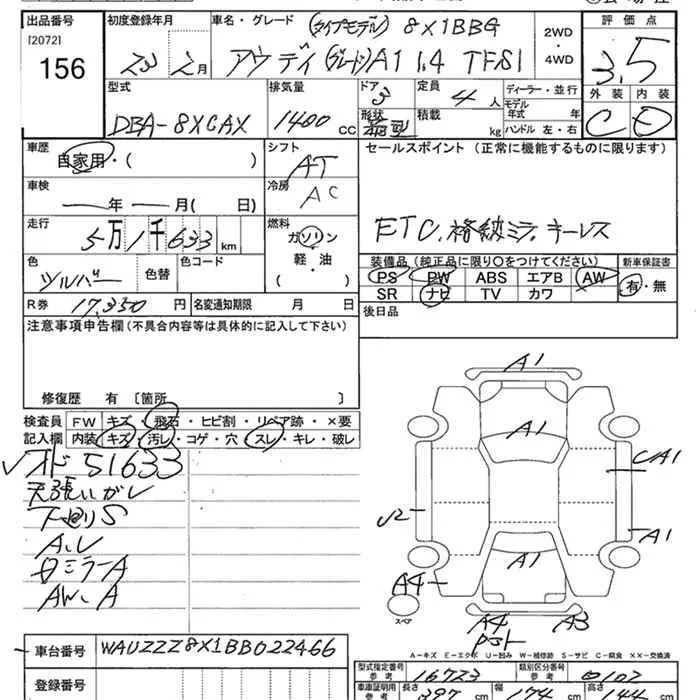 出品番号 初度登録年月 車名・グレード (タイプモデル) 8X1BBG 2WD・4WD 評価点
[2072]
156 23 2月 アウディ (グレード) A1 1.4 TFSI 3.5
型式 排気量 ドア 3 定員 4人 ディーラー・並行 外装 内装
DBA-8XCAX 1400 CC 形状 積載 kg モデル年式 年 C D
ハンドル 左・右
車歴 シフト セールスポイント (正常に機能するものに限ります)
自家用・( ) AT
車検 冷房
年 月( 日) AC
走行 燃料 ETC. 格納ミラ. キーレス
5万1千633km ガソリン
軽・油
( )
色 色替 色コード 装備品 (純正品に限り○をつけてください) 新車保証書
シルバー PS PW ABS エアB AW 有・無
SR ナビ TV カワ
R券 17,350円 名変通知期限 月 日 後日品
注意事項申告欄 (不具合内容等は具体的に記入して下さい)
修復歴 有 〔箇所 〕
検査員 FW キズ・飛石・ヒビ割・リペア跡・×要
記入欄 内装 キズ・汚レ・コゲ・穴・スレ・キレ・破レ
オド 51633
天張いがレ
下廻りS
A.U
ミラーA
AW.A
A1
A1
CA1
U2
A1
A1
A4
スペア
A4 A3
A-キズ E-エクボ U-凹み W-補修跡 S-サビ C-腐食 XX-交換済
車台番号 WAUZZZ8X1BB022466
型式指定番号 参考 16723 類別区分番号 参考 0102
登録番号
車庫証明用 参考 長さ 397 cm 幅 174 cm 高さ 144 cm